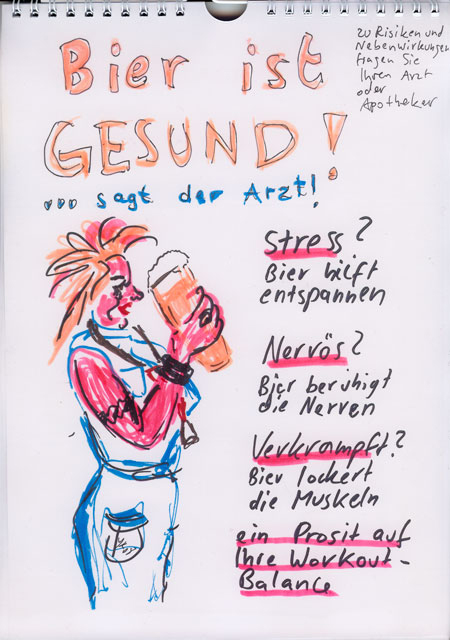 Bier ist
GESUND!
... sagt der Arzt!
zu Risiken und
Nebenwirkungen
fragen Sie
Ihren Arzt
oder
Apotheker
Stress?
Bier hilft
entspannen
Nervös?
Bier beruhigt
die Nerven
Verkrampft?
Bier lockert
die Muskeln
ein Prosit auf
Ihre Workout-
Balance